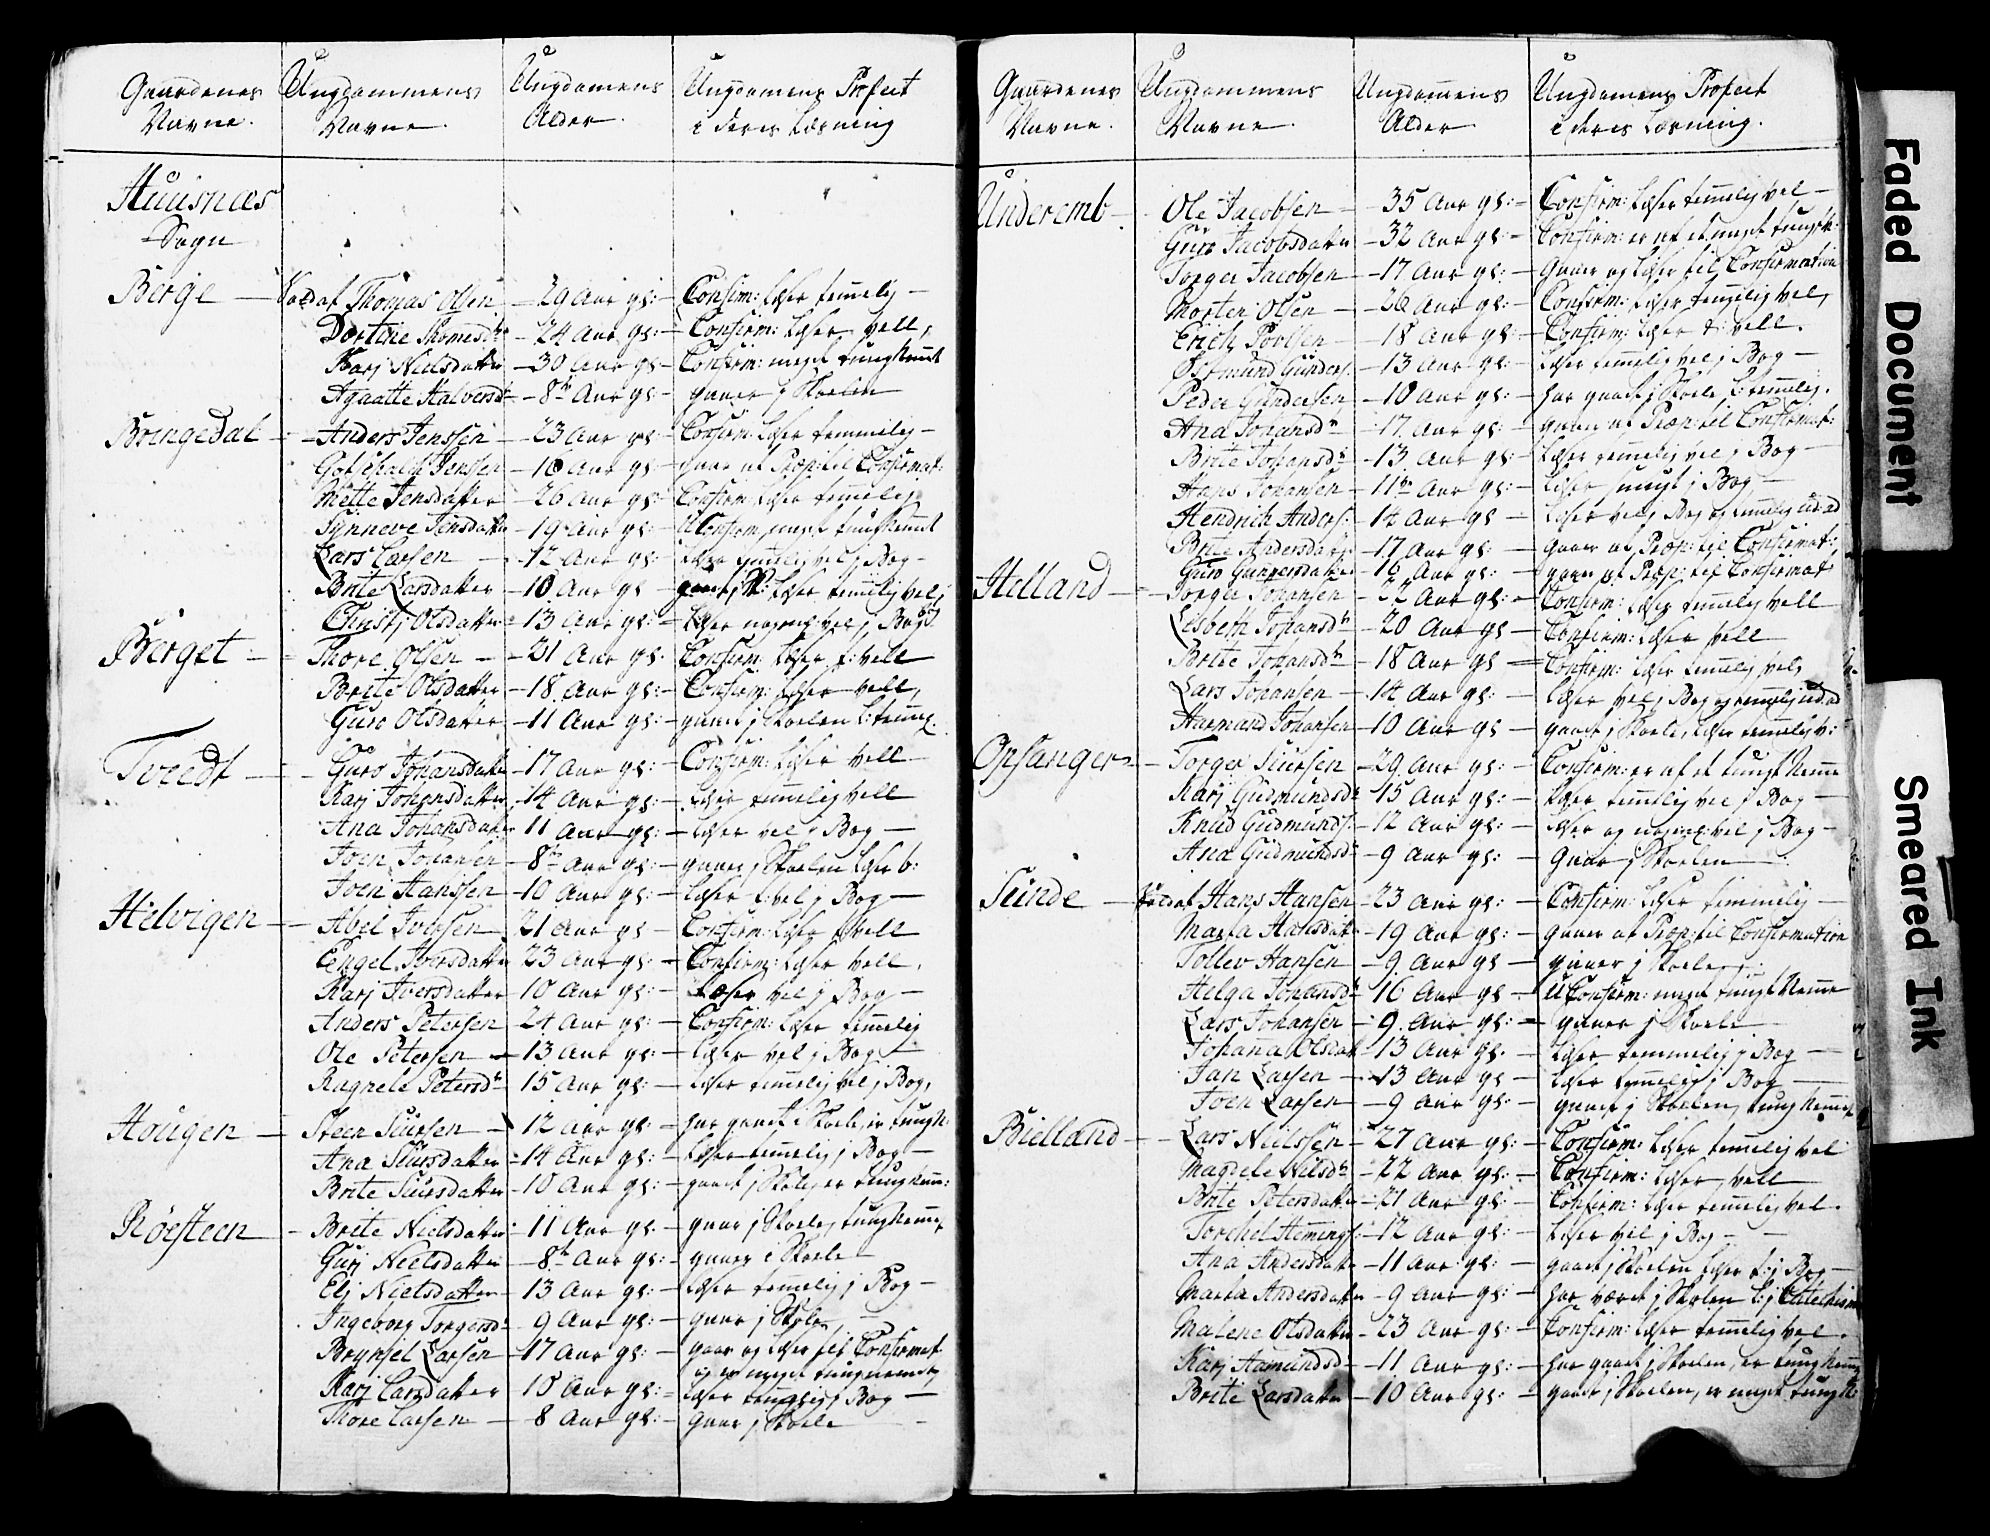 Gaardenes Ungdommens Ungdomens Ungdomens Profect
Navne. Navne. Alder. i deres Læsning
Huusnæs
Sogn
Berge — Soldat Thomas Olsen — 29 Aar gl: — Confirm: læser temelig —
Dortine Thomesdr — 24 Aar gl: — Confirm: læser vell,
Karj Nielsdatter — 30 Aar gl — Confirm: meget tungnemt
Agaatte Halversdr — 8te Aar gl: — gaaer j Skoelen
Bringedal — Anders Jenssen — 23 Aar gl: — Confirm: læser temmelig —
Jenssen — 16 Aar gl: — gaar at Præp: til Confirmat:
Mette Jensdatter — 26 Aar gl: — Confirm: læser temelig
Synneve Jensdatter — 19 Aar gl: — U Confirm: meget tungnemt
Lars Larsen — 12 Aar gl: — læser temelig vel j Bog —
Brite Larsdatter — 10 Aar gl — læser temelig vel j
Christj Olsdatter — 13 Aar gl: — læser vel j Bog
Berget — Thore Olsen — 21 Aar gl: Confirm: læser t: vell
Brite Olsdatter — 18 Aar gl: — Confirm: læser vell,
Guro Olsdatter — 11 Aar gl: — gaaet j Skoelen l: temig.
Tvedt — Guro Johansdatter — 17 Aar gl: — Confirm: læser vell
Karj Johansdatter — 14 Aar gl: — læser temelig vell
Ana Johansdatter 11 Aar gl: — læser vel j Bog —
Joen Johansen — 8te Aar gl: — gaaer j Skoelen læser b:
Joen Hanssen — 10 Aar gl: — læser t: vel j Bog —
Helvigen — Abel Iversen 21 Aar gl — Confirm: læser t: vell
Engel Iversdatter 23 Aar gl: — Confirm: læser vell.
Karj Iversdatter 10 Aar gl: — læser vel j Bog —
Anders Petersen 24 Aar gl: — Confirm: læser temelig
Ole Petersen — 13 Aar gl: — læser vel j Bog —
Ragnele Petersdr 15 Aar gl: — læser temelig vel j Bog,
Hougen — Steen Siursen — 12 Aar gl: — har gaaet i Skoele, er tungn:
Ana Siursdatter — 14 Aar gl: — læser temelig j Bog —
Brite Siursdatter — 10 Aar gl: — gaaet j Skole, er tungnem:
Röesteen — Brite Nielsdatter 11 Aar gl. — gaar j Skoele, tungnemet
Gurj Nielsdatter — 8te Aar gl: — gaaer i Skoele —
Elj Nielsdatter — 13 Aar gl: — læser temelig j Bog —
Ingeborg Torgersdr 9 Aar gl: — gaar j Skole —
Brynjel Larsen — 17 Aar gl: — gaar og læser til Confirmat
og er meget tungnemet,
Karj Larsdatter — 15 Aar gl: — læser temelig j Bog —
Thore Larsen — 8 Aar gl: — gaar j Skoele
Gaardenes Ungdommens Ungdomens Ungdomens Profect
Navne. Navne. Alder i deres Læsning.
Underemb — Ole Jacobsen — 35 Aar gl: — Confirm: læser temelig vel —
Guro Jacobsdatter — 32 Aar gl: — Confirm: er af et meget tungt N:
Torger Jacobsen — 17 Aar gl: — Gaaer og læser til Confirmation
Morten Olsen — 26 Aar gl: — Confirm: læser temelig vel,
Erich Povlsen — 18 Aar gl: — Confirm: læser t: vell.
Gunders. — 13 Aar gl: — læser temelig vel j Bog —
Peder Gundersen — 10 Aar gl: — har gaaet j Skoele, l: temelig.
Ana Johansdr — 17 Aar gl: — gaaer at Præp: til Confirmat:
Brite Johansdr — 13 Aar gl: — læser temelig vel j Bog —
Hans Johansen — 11te Aar gl: — læser smugt j Bog —
Hendrich Anders: — 14 Aar gl — læser vel j Bog og temelig ud: ad
Brite Andersdatr — 17 Aar gl: — gaaer at Præp: til Confirmat:
Guro Gunnersdatter — 16 Aar gl: — gaaer at Præp: til Confirmat:
Helland — Torger Johansen — 22 Aar gl: — Confirm: læser temelig vell
Lisbeth Johansdr — 20 Aar gl — Confirm: læser vell
Brite Johansdr — 18 Aar gl — Confirm: læser temelig vel,
Lars Johansen — 14 Aar gl: — læser vel j Bog og temelig ud: ad
Harmand Johansen — 10 Aar gl — gaaet j Skoele, læser temelig v:
Opsanger — Torger Siursen — 29 Aar gl: — Confirm: er af et tungt Nemme
Karj Gudmundsdr — 15 Aar gl: — læser temelig vel j Bog —
Knud Gudmunds: — 12 Aar gl: — læser og vel j Bog —
Ana Gudmundsdr — 9 Aar gl: — Gaar j Skoelen
Sunde — Soldat Hans Hansen — 23 Aar gl: — Confirm: læser temmelig —
Marta Hansdatr — 19 Aar gl: — gaaer at Præp: til Confirmation
Tollev Hansen — 9 Aar gl — gaaer j Skoele
Helga Johansdr — 16 Aar gl — U Confirm: meget tungt Nemme
Lars Johansen — 9 Aar gl: — gaaer j Skoele
Johana Olsdatr — 13 Aar gl: — læser temmelig j Bog —
Jan Larsen — 13 Aar gl — læser temelig j Bog —
Joen Larsen — 9 Aar gl: — gaaet j Skoelen, tungnemmet
Bielland — Lars Nielssen — 27 Aar gl: — Confirm: læser temelig vel
Magdele Nielsdr — 22 Aar gl: — Confirm: læser vell
Brite Petersdatter — 21 Aar gl: — Confirm: læser temelig vel.
Torchel Hemings: — 12 Aar gl: — læser vel j Bog —
Ana Andersdatr — 11 Aar gl: — gaaet j Skoelen læser t: j Bog —
Marta Andersdatter — 9 Aar gl: — har været j Skolen l: j Catechism
Malene Olsdatter — 23 Aar gl: — Confirm: læser temelig vel.
Karj Aamundsd — 11 Aar gl: — har gaaet j Skoelen, er tungnem
Brite Larsdatter — 10 Aar gl: — gaaet j Skoelen, er meget tungn:
Faded Document
Smeared Ink